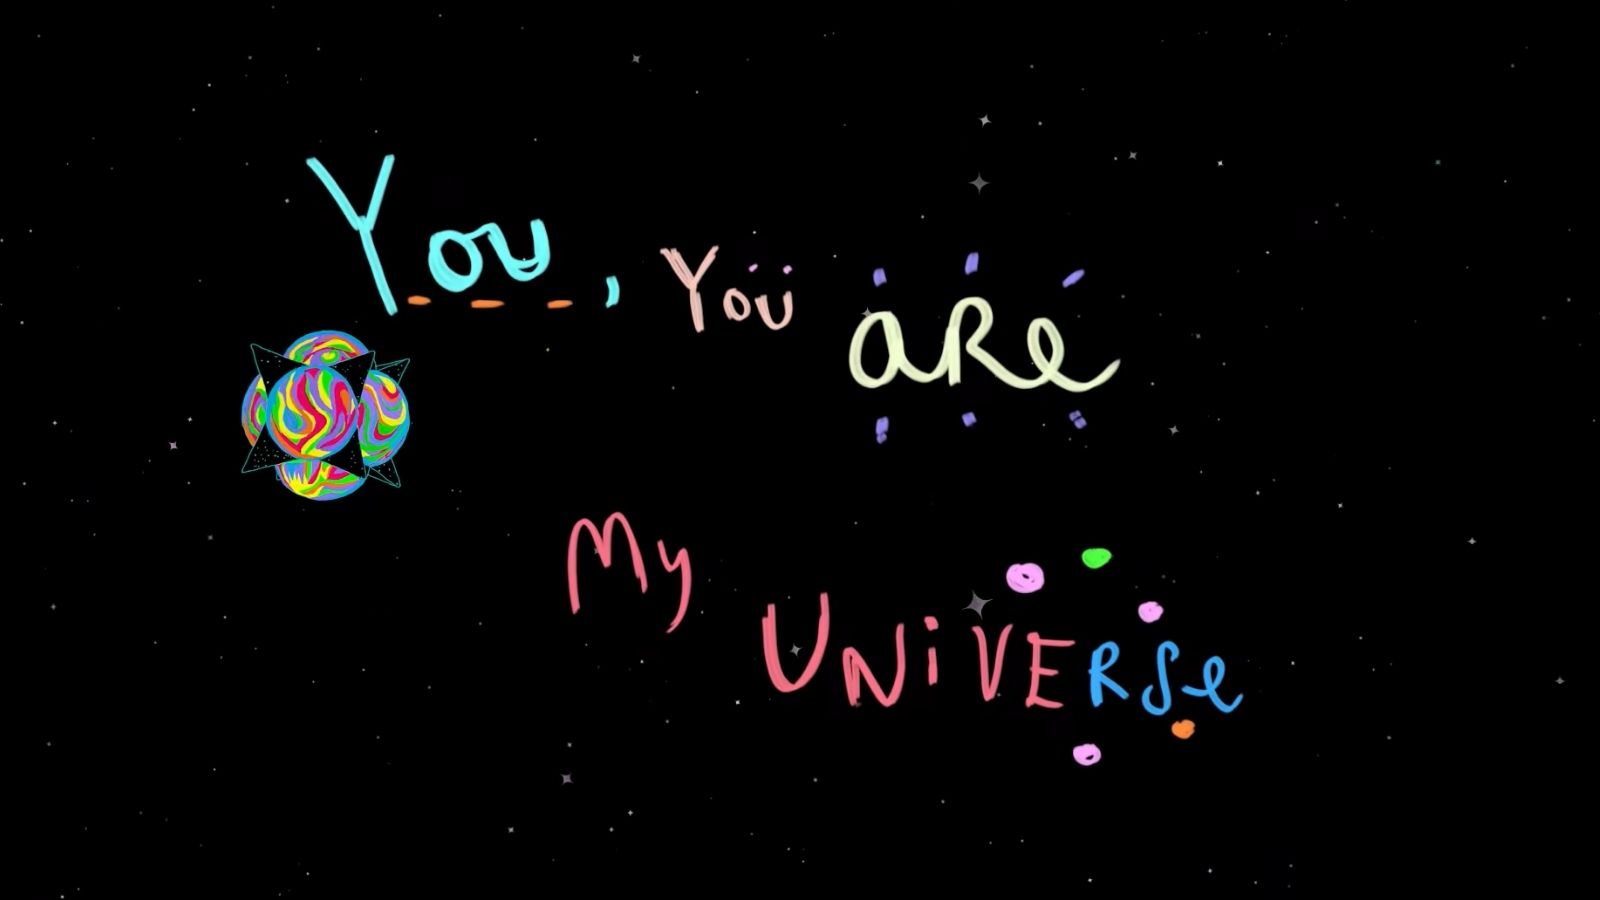 You, You aRe
My UNiVERSe